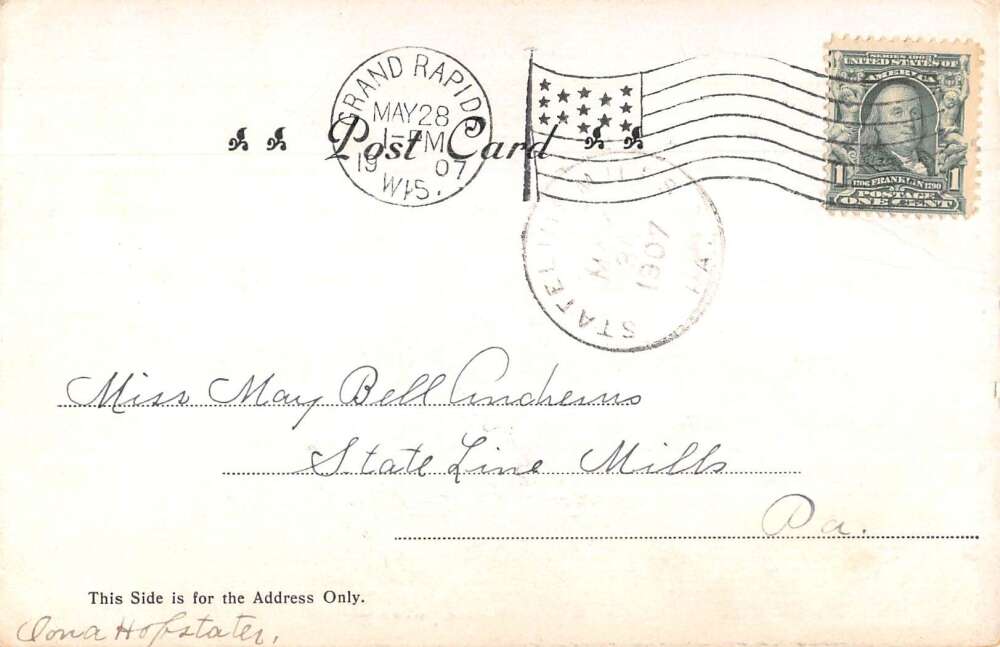 GRAND RAPIDS
MAY 28
1-PM
1907
WIS.
Post Card
SERIES 1902
UNITED STATES OF
AMERICA
1 1706 FRANKLIN 1790 1
POSTAGE
ONE CENT
STATELINE MILLS
MAY
1907
PA.
Miss May Bell Andrews
State Line Mills
Pa.
This Side is for the Address Only.
Hofstater,